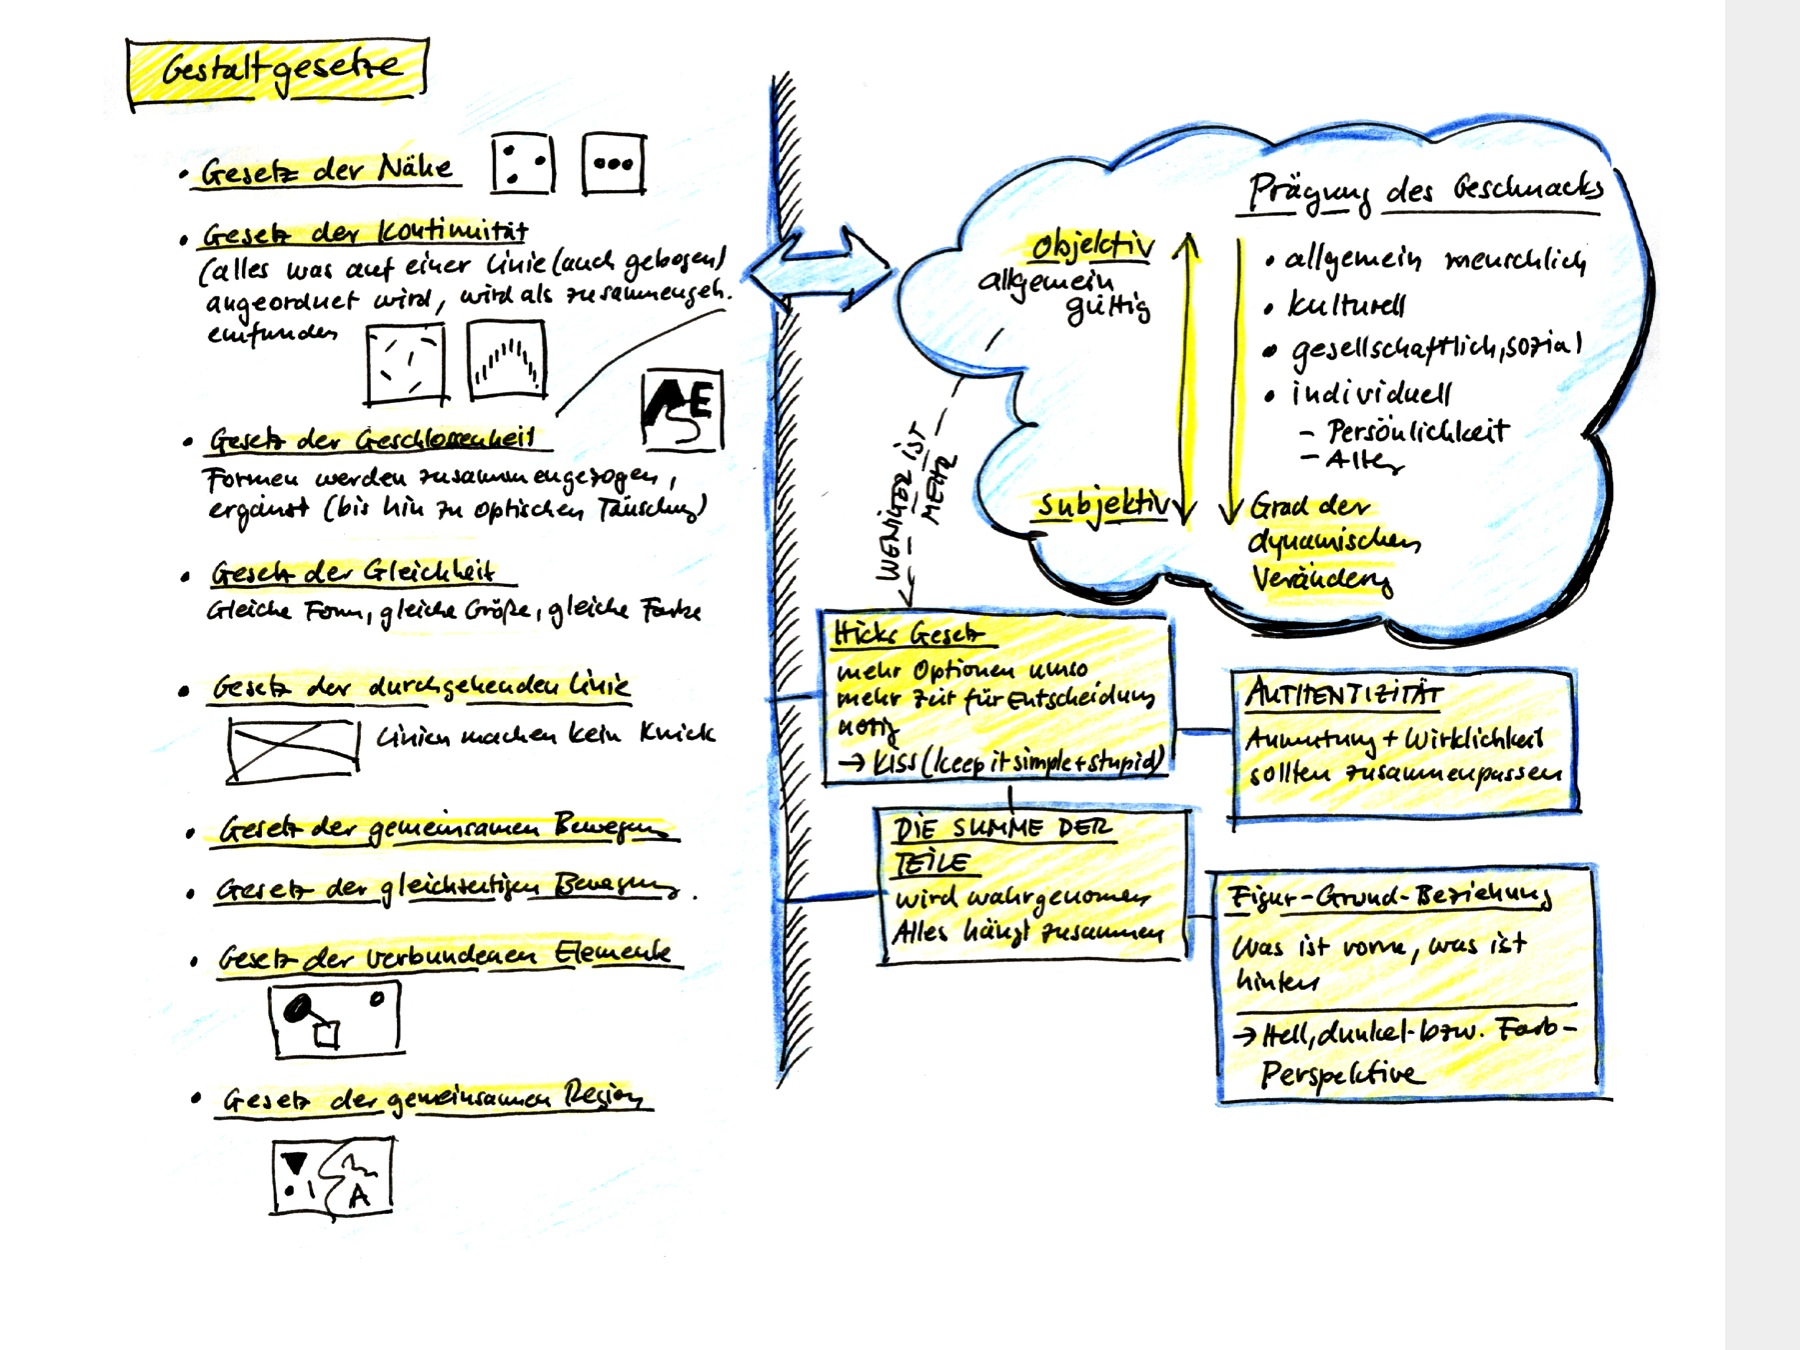 Gestaltgesetze
• Gesetz der Nähe
• Gesetz der Kontinuität
(alles was auf einer Linie (auch gebogen)
angeordnet wird, wird als zusammengeh.
emfunden
AE
S
• Gesetz der Geschlossenheit
Formen werden zusammengezogen,
ergänzt (bis hin zu optischen Täuschung)
• Gesetz der Gleichheit
Gleiche Form, gleiche Größe, gleiche Farbe
• Gesetz der durchgehenden Linie
Linien machen kein Knick
• Gesetz der gemeinsamen Bewegung
• Gesetz der gleichzeitigen Bewegung.
• Gesetz der verbundenen Elemente
• Gesetz der gemeinsamen Region
A
Prägung des Geschmacks
objektiv
allgemein
gültig
subjektiv
• allgemein menschlich
• kulturell
• gesellschaftlich, sozial
• individuell
– Persönlichkeit
– Alter
Grad der
dynamischen
Veränderg
WENIGER IST
MEHR
Hicks Gesetz
mehr Optionen umso
mehr Zeit für Entscheidung
nötig
→ KISS (keep it simple + stupid)
AUTHENTIZITÄT
Anmutung + Wirklichkeit
sollten zusammenpassen
DIE SUMME DER
TEILE
wird wahrgenommen
Alles hängt zusammen
Figur-Grund-Beziehung
Was ist vorne, was ist
hinten
→ Hell, dunkel- bzw. Farb-
Perspektive